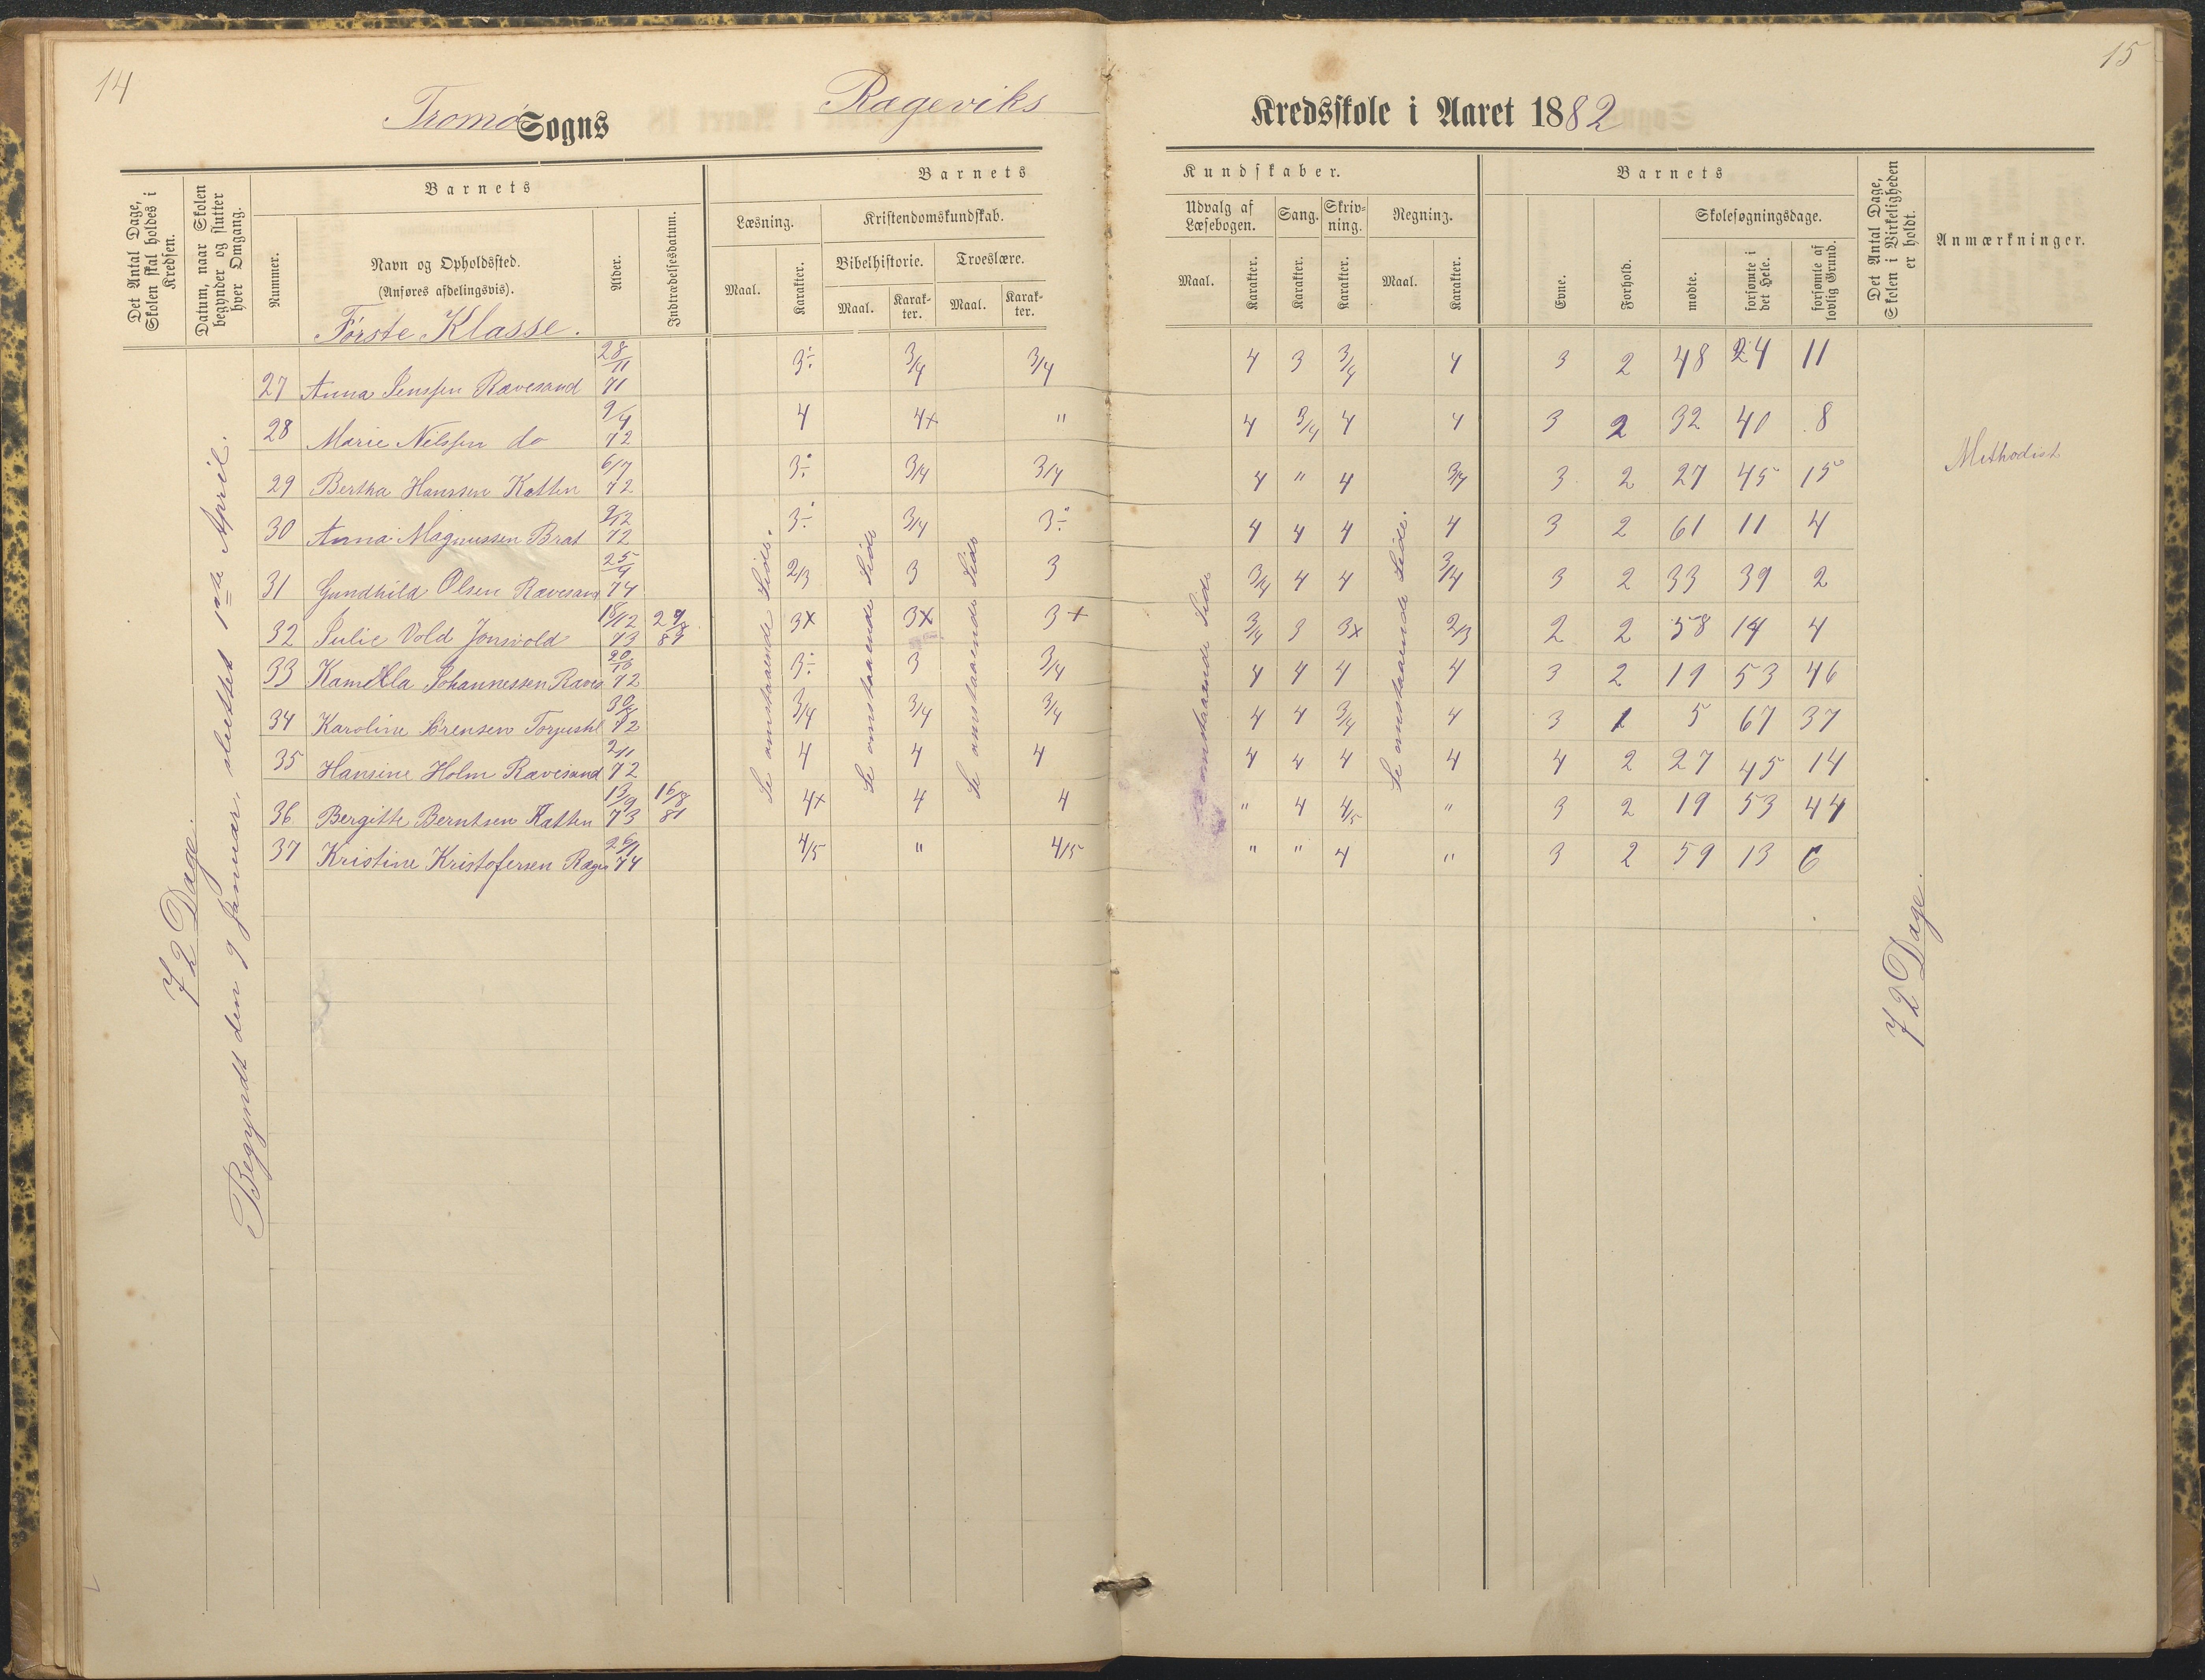 14
15
Tromø Sogns Rageviks Kredsskole i Aaret 1882
Det Antal Dage, Skolen skal holdes i Kredsen.
Datum, naar Skolen begynder og slutter hver Omgang.
Barnets
Nummer.
Navn og Opholdssted.
(Anføres afdelingsvis).
Første Klasse.
Alder.
Indtrædelsesdatum.
Barnets Kundskaber.
Læsning.
Maal. Karakter.
Kristendomskundskab.
Bibelhistorie. Troeslære.
Maal. Karakter. Maal. Karakter.
Udvalg af Læsebogen. Sang. Skrivning. Regning.
Maal. Karakter. Karakter. Karakter. Maal. Karakter.
Barnets
Evne. Forhold.
Skolesøgningsdage.
mødte. forsømte i det Hele. forsømte af lovlig Grund.
Det Antal Dage, Skolen i Virkeligheden er holdt.
Anmærkninger.
72 Dage.
Begyndt den 9 Januar, sluttet 1ste April.
27 Anna Jenssen Rævesand 28/11 71 3÷ 3/4 3/4 4 3 3/4 4 3 2 48 24 11
28 Marie Nilssen do 9/4 72 4 4+ " 4 3/4 4 4 3 2 32 40 8 Methodist
29 Bertha Hanssen Katten 6/7 72 3÷ 3/4 3/4 4 " 4 3/4 3 2 27 45 15
30 Anna Magnussen Brat 2/12 72 3÷ 3/4 3÷ 4 4 4 4 3 2 61 11 4
31 Gundhild Olsen Rævesand 25/4 74 2/3 3 3 3/4 4 4 3/4 3 2 33 39 2
32 Julie Vold Jonsvold 18/12 73 3+ 3+ 3+ 3/4 3 3+ 2/3 2 2 58 14 4
33 Kamilla Johannessen Raves 20/10 72 3÷ 3 3/4 4 4 4 4 3 2 19 53 46
34 Karoline Sørensen 72 3/4 3/4 3/4 4 4 3/4 4 3 1 5 67 37
35 Hansine Holm Rævesand 2/11 72 4 4 4 4 4 4 4 4 2 27 45 14
36 Bergitte Berntsen Katten 13/9 73 16/8 81 4+ 4 4 " 4 4/5 " 3 2 19 53 44
37 Kristine Kristofersen Rages 26/1 74 4/5 " 4/5 " " 4 " 3 2 59 13 6
Se omstaaende Side.
Se omstaaende Side
Se omstaaende Side
Se omstaaende Side
Se omstaaende Side.
72 Dage.